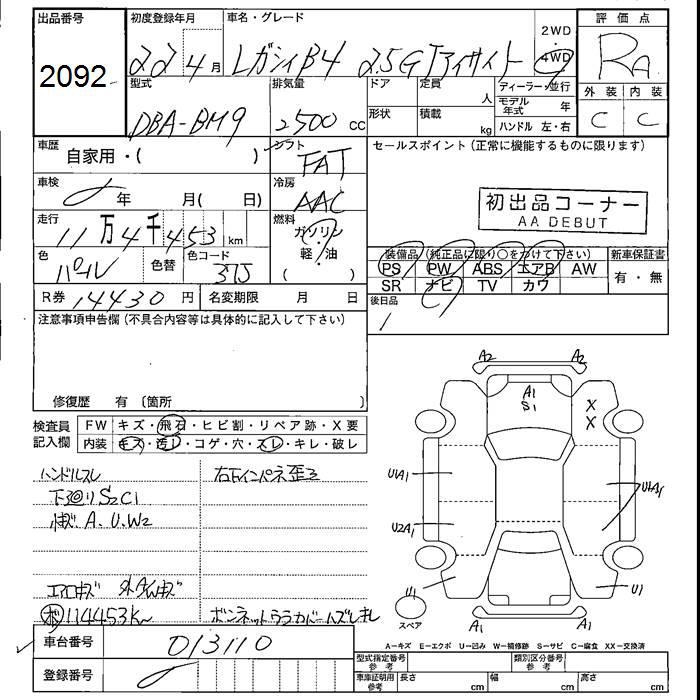 出品番号 初度登録年月 車名・グレード 2WD 評価点
2092 22年4月 レガシィB4 2.5GTアイサイト 4WD RA
型式 排気量 ドア 定員 人 ディーラー・並行 外装 内装
DBA-BM9 2500 cc 形状 積載 kg モデル年式 年 C C
ハンドル 左・右
車歴 自家用・( ) シフト FAT セールスポイント(正常に機能するものに限ります)
車検 年 月( 日) 冷房 AAC 初出品コーナー
AA DEBUT
走行 11万4千453km 燃料 ガソリン・軽・油
色 パール 色替 色コード 37J 装備品(純正品に限り○をつけて下さい) 新車保証書
PS PW ABS エアB AW 有・無
SR ナビ TV カワ
R券 14430円 名変期限 月 日 後日品
注意事項申告欄(不具合内容等は具体的に記入して下さい)
修復歴 有(箇所 )
検査員記入欄 FW キズ・飛石・ヒビ割・リペア跡・X要
内装 キズ・汚レ・コゲ・穴・スレ・キレ・破レ
ハンドルスレ 右下インパネ歪ミ
下廻りS2C1
A.U.W2
エアロキズ
114453Km
A2 A2
A1
S1
X
X
U1A1 U1A1
U2A1
U1 U1
スペア A1 A1
A-キズ E-エクボ U-凹み W-補修跡 S-サビ C-腐食 XX-交換済
車台番号 013110
型式指定番号 参考 類別区分番号 参考
登録番号 車庫証明用 参考 長さ cm 幅 cm 高さ cm